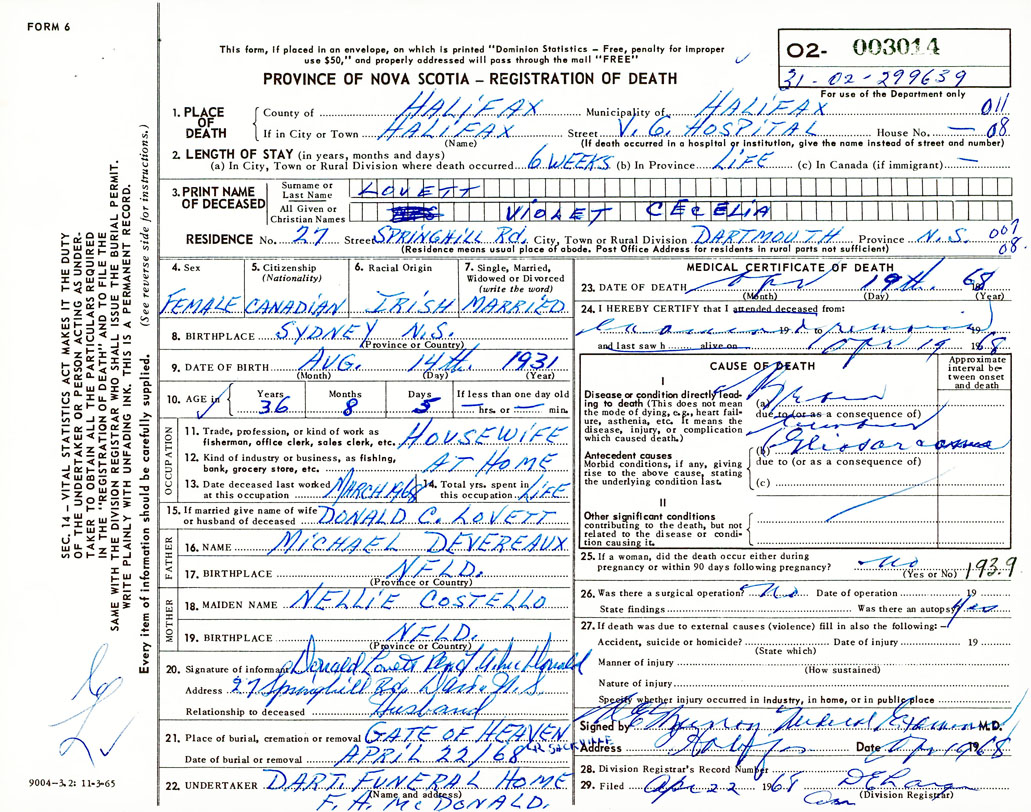 FORM 6
This form, if placed in an envelope, on which is printed "Dominion Statistics – Free, penalty for improper
use $50," and properly addressed will pass through the mail "FREE"
PROVINCE OF NOVA SCOTIA – REGISTRATION OF DEATH
02- 003014
31-02-299639
For use of the Department only
1. PLACE OF DEATH County of HALIFAX Municipality of HALIFAX 011
If in City or Town HALIFAX Street V.G. HOSPITAL House No. — 08
(Name) (If death occurred in a hospital or institution, give the name instead of street and number)
2. LENGTH OF STAY (in years, months and days)
(a) In City, Town or Rural Division where death occurred 6 WEEKS (b) In Province LIFE (c) In Canada (if immigrant) —
3. PRINT NAME OF DECEASED Surname or Last Name LOVETT
All Given or Christian Names VIOLET CECELIA
RESIDENCE No. 27 Street SPRINGHILL Rd. City, Town or Rural Division DARTMOUTH Province N.S. 007
(Residence means usual place of abode. Post Office Address for residents in rural parts not sufficient) 08.
4. Sex FEMALE
5. Citizenship (Nationality) CANADIAN
6. Racial Origin IRISH
7. Single, Married, Widowed or Divorced (write the word) MARRIED
8. BIRTHPLACE SYDNEY N.S.
(Province or Country)
9. DATE OF BIRTH AUG. 14th. 1931
(Month) (Day) (Year)
10. AGE in Years 36 Months 8 Days 5 If less than one day old — hrs. or — min.
OCCUPATION
11. Trade, profession, or kind of work as
fisherman, office clerk, sales clerk, etc. HOUSEWIFE
12. Kind of industry or business, as fishing,
bank, grocery store, etc. AT HOME
13. Date deceased last worked at this occupation MARCH 1968 14. Total yrs. spent in this occupation LIFE
15. If married give name of wife
or husband of deceased DONALD C. LOVETT
FATHER
16. NAME MICHAEL DEVEREAUX
17. BIRTHPLACE NFLD.
(Province or Country)
MOTHER
18. MAIDEN NAME NELLIE COSTELLO
19. BIRTHPLACE NFLD.
(Province or Country)
20. Signature of informant Donald Lovett
Address 27 Springhill Rd. Dart. N.S.
Relationship to deceased Husband
21. Place of burial, cremation or removal GATE OF HEAVEN
LR SACKVILLE
Date of burial or removal APRIL 22/68
22. UNDERTAKER DART. FUNERAL HOME
(Name and address)
F. A. McDONALD.
MEDICAL CERTIFICATE OF DEATH
23. DATE OF DEATH Apr 19th. 1968
(Month) (Day) (Year)
24. I HEREBY CERTIFY that I attended deceased from:
examined 19 to 19
and last saw h alive on Apr 19 1968
CAUSE OF DEATH
Approximate interval between onset and death
I
Disease or condition directly leading to death (This does not mean the mode of dying, e.g., heart failure, asthenia, etc. It means the disease, injury, or complication which caused death.)
(a)
due to (or as a consequence of)
(b)
Antecedent causes
Morbid conditions, if any, giving rise to the above cause, stating the underlying condition last.
due to (or as a consequence of)
(c)
II
Other significant conditions
contributing to the death, but not related to the disease or condition causing it.
25. If a woman, did the death occur either during
pregnancy or within 90 days following pregnancy? No
(Yes or No) 193.9
26. Was there a surgical operation? No Date of operation 19
State findings Was there an autopsy? Yes
27. If death was due to external causes (violence) fill in also the following: –
Accident, suicide or homicide? Date of injury 19
(State which)
Manner of injury
(How sustained)
Nature of injury
Specify whether injury occurred in industry, in home, or in public place
Signed by Medical Examiner M.D.
Address Halifax Date Apr 19 1968
28. Division Registrar's Record Number
29. Filed Apr 22 1968
(Division Registrar)
SEC. 14 – VITAL STATISTICS ACT MAKES IT THE DUTY
OF THE UNDERTAKER OR PERSON ACTING AS UNDER-
TAKER TO OBTAIN ALL THE PARTICULARS REQUIRED
IN THE "REGISTRATION OF DEATH" AND TO FILE THE
SAME WITH THE DIVISION REGISTRAR WHO SHALL ISSUE THE BURIAL PERMIT.
WRITE PLAINLY WITH UNFADING INK. THIS IS A PERMANENT RECORD.
Every item of information should be carefully supplied. (See reverse side for instructions.)
9004–3.2: 11-3-65